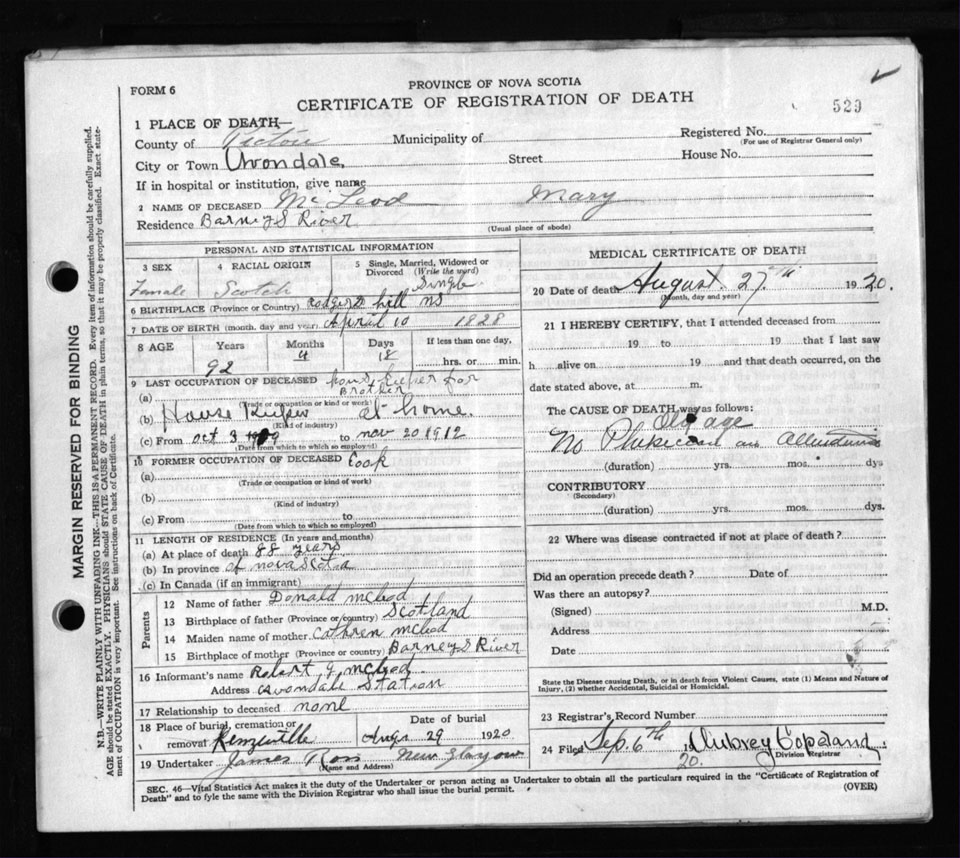 PROVINCE OF NOVA SCOTIA
FORM 6
CERTIFICATE OF REGISTRATION OF DEATH
529
1 PLACE OF DEATH—
County of Pictou Municipality of Registered No.
(For use of Registrar General only)
City or Town Avondale Street House No.
If in hospital or institution, give name
2 NAME OF DECEASED McLeod Mary
Residence Barney S River
(Usual place of abode)
PERSONAL AND STATISTICAL INFORMATION
3 SEX 4 RACIAL ORIGIN 5 Single, Married, Widowed or Divorced (Write the word)
Female Scotch Single
6 BIRTHPLACE (Province or Country) Rodgers hill NS
7 DATE OF BIRTH (month, day and year) April 10 1828
8 AGE Years Months Days If less than one day,
92 4 18 hrs. or min.
9 LAST OCCUPATION OF DECEASED
(a) house keeper for Brother
(Trade or occupation or kind of work)
(b) House Keeper at home.
(Kind of industry)
(c) From Oct 3 to Nov 20 1912
(Date from which to which so employed)
10 FORMER OCCUPATION OF DECEASED
(a) Cook
(Trade or occupation or kind of work)
(b)
(Kind of industry)
(c) From to
(Date from which to which so employed)
11 LENGTH OF RESIDENCE (In years and months)
(a) At place of death 88 years
(b) In province of nova Scotia
(c) In Canada (if an immigrant)
Parents
12 Name of father Donald McLeod
13 Birthplace of father (Province or country) Scotland
14 Maiden name of mother Cathren McLeod
15 Birthplace of mother (Province or country) Barney S River
16 Informant's name Robert G McLeod
Address Avondale Station
17 Relationship to deceased none
18 Place of burial, cremation or removal Date of burial
Aug 29 1920
19 Undertaker James Ross New Glasgow
(Name and Address)
MEDICAL CERTIFICATE OF DEATH
20 Date of death August 27th 1920.
(Month, day and year)
21 I HEREBY CERTIFY, that I attended deceased from
19 to 19 that I last saw
h alive on 19 and that death occurred, on the
date stated above, at m.
The CAUSE OF DEATH was as follows:
Old age
No
(duration) yrs. mos. dys
CONTRIBUTORY
(Secondary)
(duration) yrs. mos. dys.
22 Where was disease contracted if not at place of death?
Did an operation precede death? Date of
Was there an autopsy?
(Signed) M.D.
Address
Date
State the Disease causing Death, or in death from Violent Causes, state (1) Means and Nature of
Injury, (2) whether Accidental, Suicidal or Homicidal.
23 Registrar's Record Number
24 Filed Sep. 6th 1920. Aubrey Copeland
Division Registrar
SEC. 46—Vital Statistics Act makes it the duty of the Undertaker or person acting as Undertaker to obtain all the particulars required in the "Certificate of Registration of
Death" and to fyle the same with the Division Registrar who shall issue the burial permit.
(OVER)
MARGIN RESERVED FOR BINDING
N.B.—WRITE PLAINLY WITH UNFADING INK—THIS IS A PERMANENT RECORD. Every item of information should be carefully supplied.
AGE should be stated EXACTLY. PHYSICIANS should STATE CAUSE OF DEATH in plain terms, so that it may be properly classified. Exact statement
of OCCUPATION is very important. See instructions on back of Certificate.